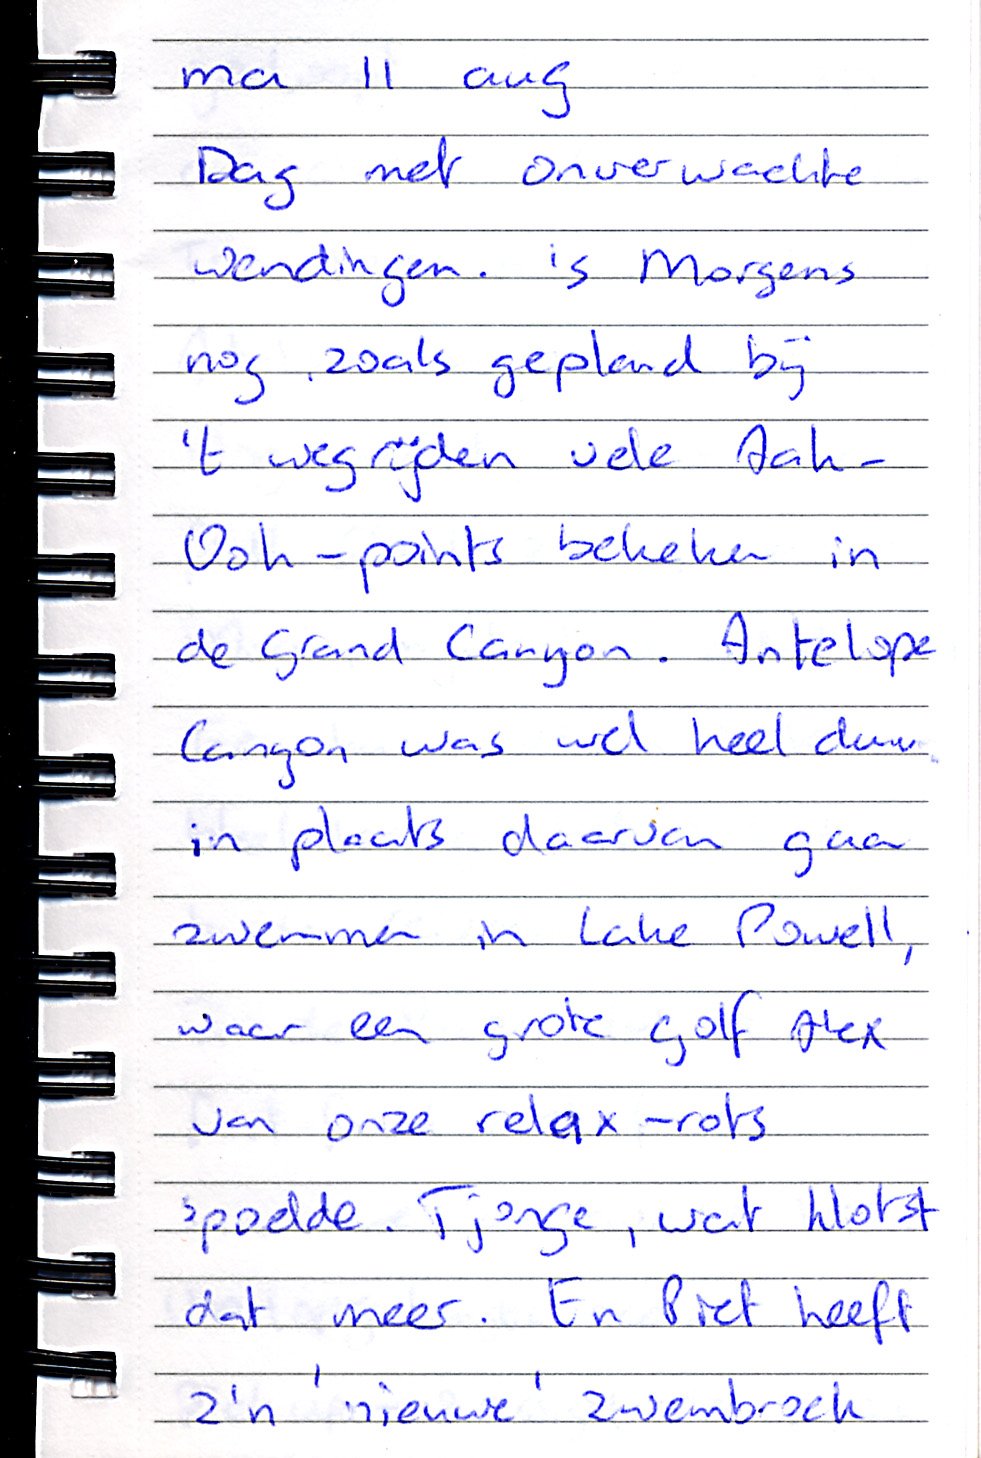 ma 11 aug
Dag met onverwachte
wendingen. 's Morgens
nog, zoals gepland bij
't wegrijden vele Aah-
Ooh-points bekeken in
de Grand Canyon. Antelope
Canyon was wel heel duur.
in plaats daarvan gaan
zwemmen in Lake Powell,
waar een grote golf Alex
van onze relax-rots
spoelde. Tjonge, wat klotst
dat meer. En Piet heeft
z'n 'nieuwe' zwembroek